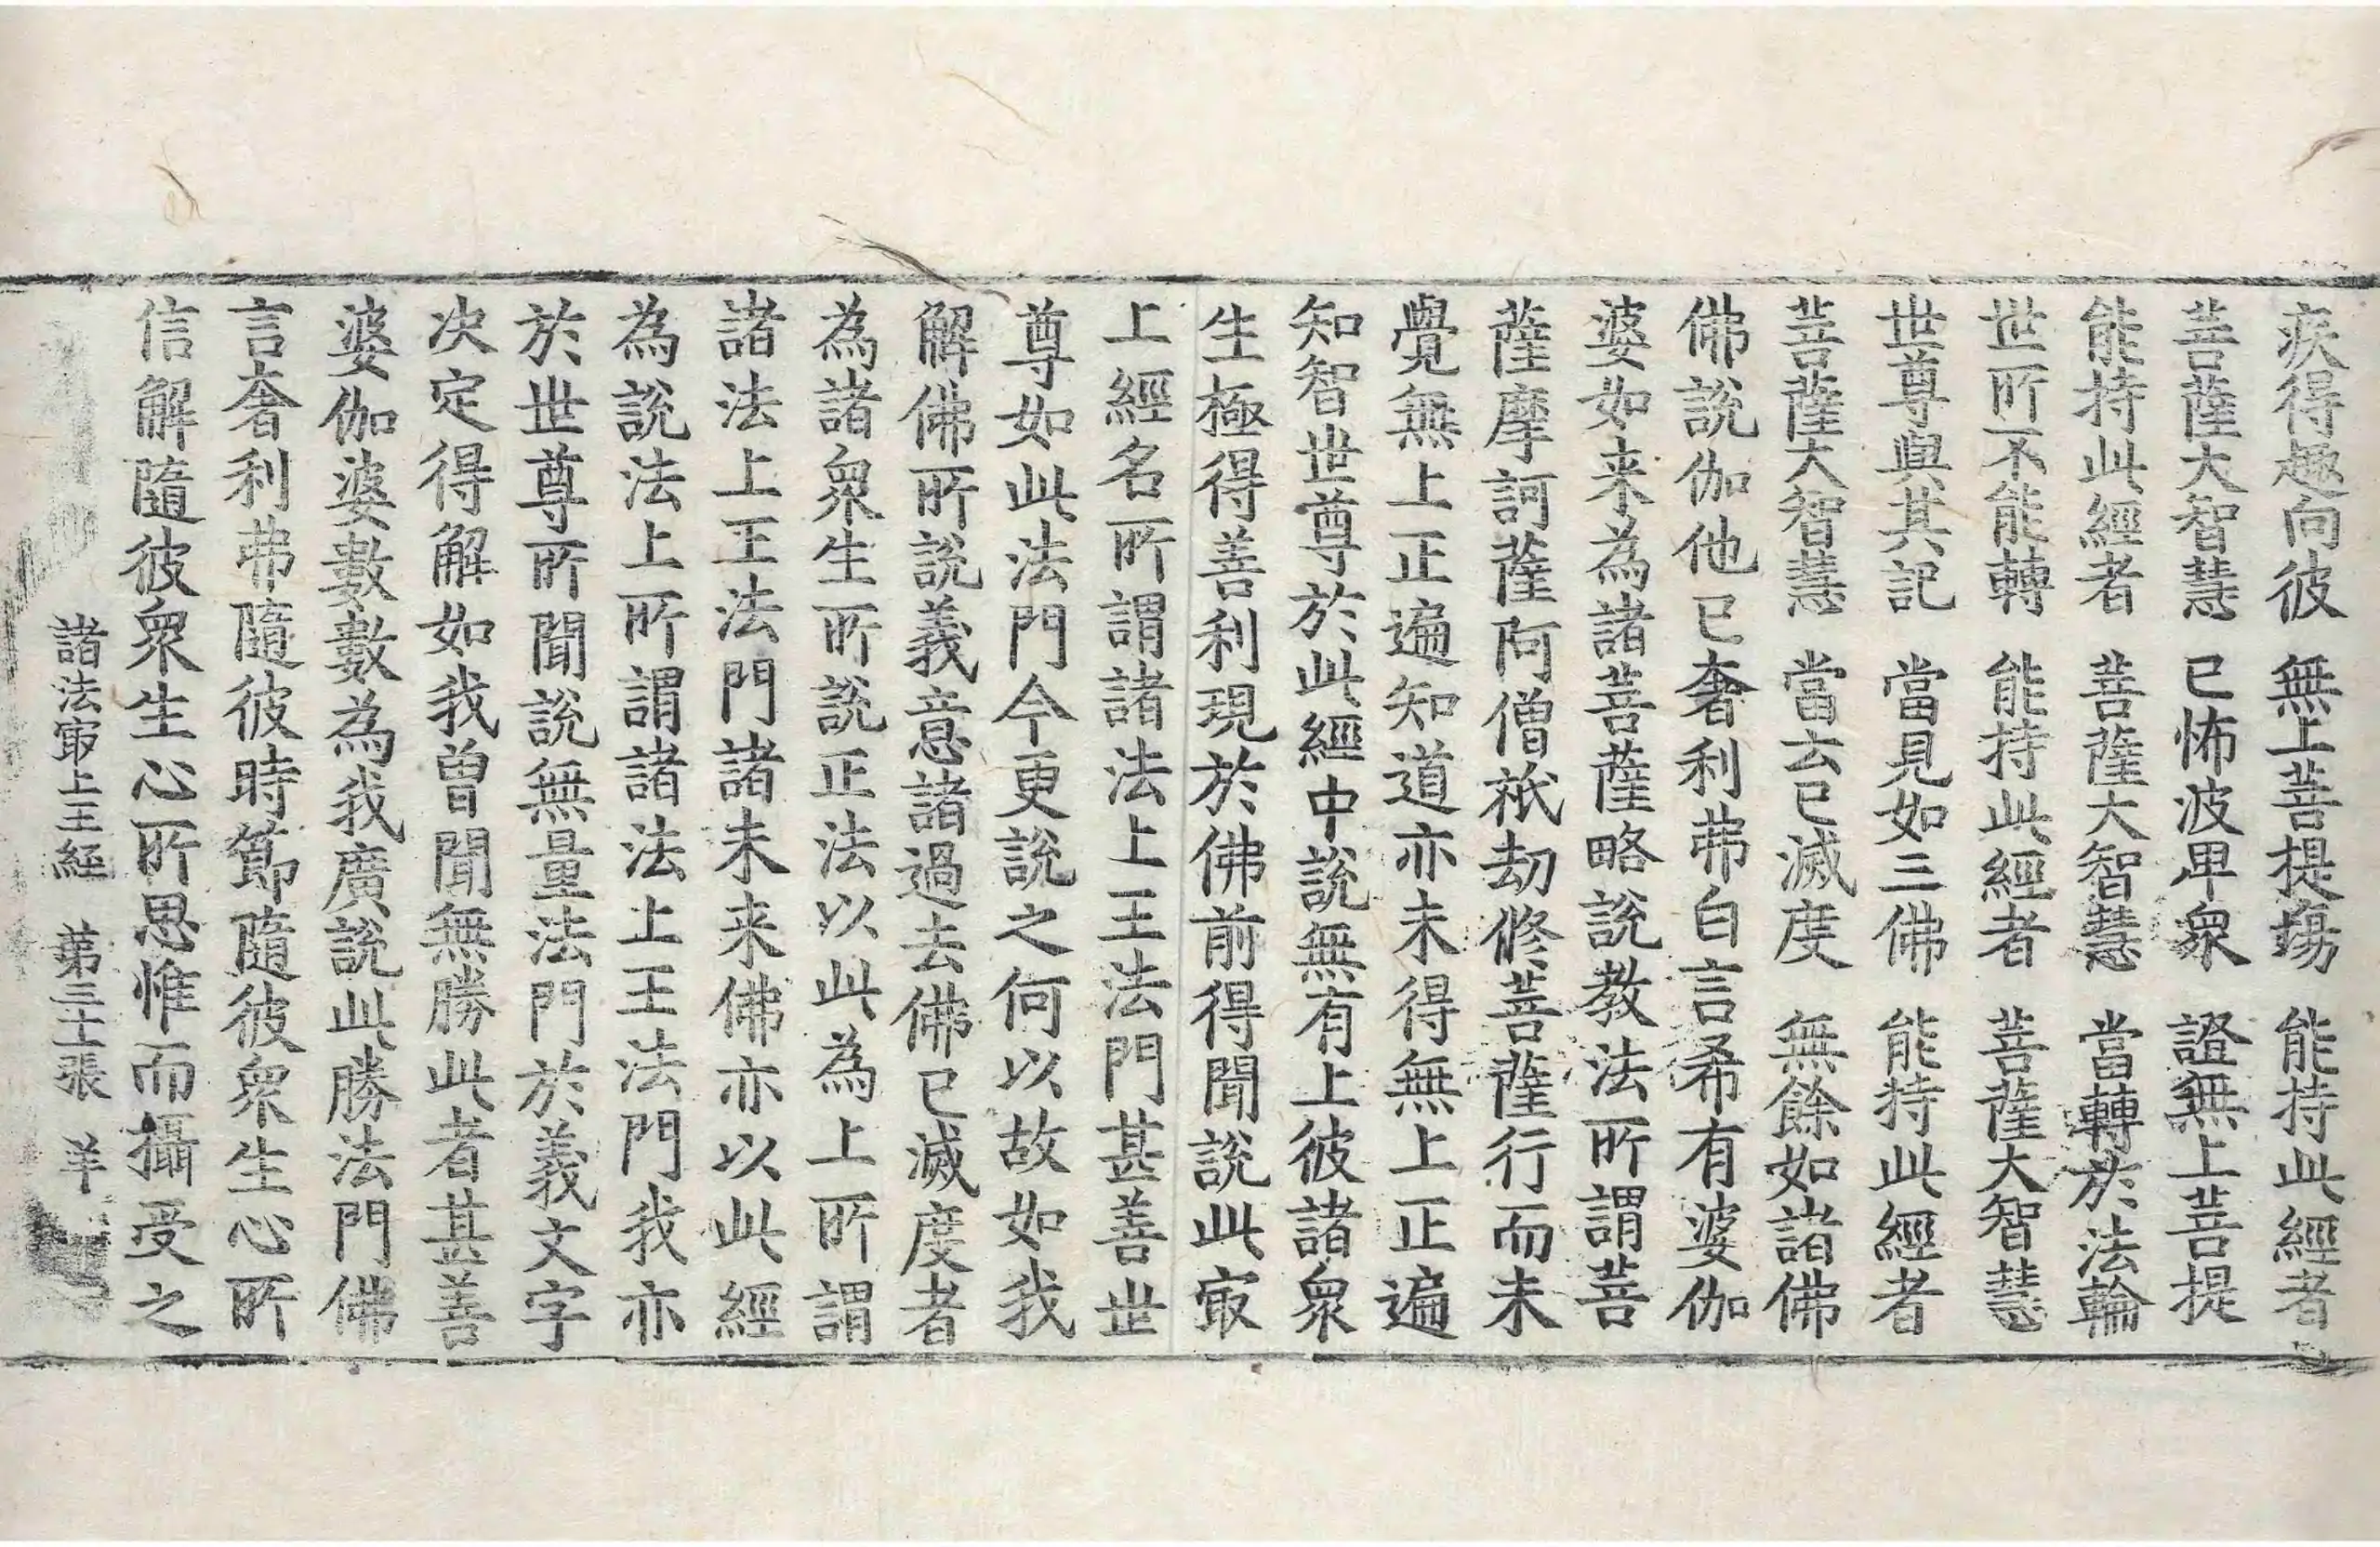 疾得趣向彼　無上菩提塲　能持此經者
菩薩大智慧　已怖波卑衆　證無上菩提
能持此經者　菩薩大智慧　當轉於法輪
世所不能轉　能持此經者　菩薩大智慧
世尊與其記　當見如三佛　能持此經者
菩薩大智慧　當去已滅度　無餘如諸佛
佛說伽他已奢利弗白言希有婆伽
婆如来為諸菩薩略說教法所謂菩
薩摩訶薩阿僧祇劫修菩薩行而未
覺無上正遍知道亦未得無上正遍
知智世尊於此經中說無有上彼諸衆
生極得善利現於佛前得聞說此㝡
上經名所謂諸法上王法門甚善世
尊如此法門今更說之何以故如我
解佛所說義意諸過去佛已滅度者
為諸衆生所說正法以此為上所謂
諸法上王法門諸未来佛亦以此經
為說法上所謂諸法上王法門我亦
於世尊所聞說無量法門於義文字
决定得解如我曾聞無勝此者甚善
婆伽婆數數為我廣說此勝法門佛
言奢利弗隨彼時節隨彼衆生心所
信解隨彼衆生心所思惟而攝受之
諸法㝡上王經　第三十張　羊